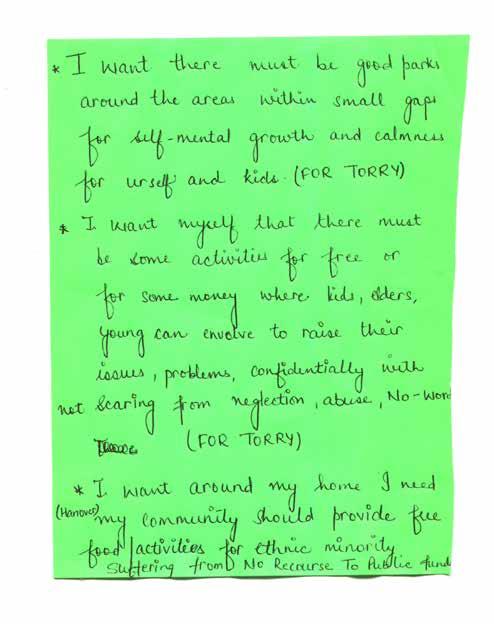 * I want there must be good parks
around the areas within small gaps
for self-mental growth and calmness
for urself and kids. (FOR TORRY)
* I want myself that there must
be some activities for free or
for some money where kids, elders,
young can envolve to raise their
issues, problems, confidentially with
not scaring from neglection, abuse, No-word
(FOR TORRY)
* I want around my home I need
(Hanover) my community should provide free
food/activities for ethnic minority
Suffering from No Recourse To Public fund